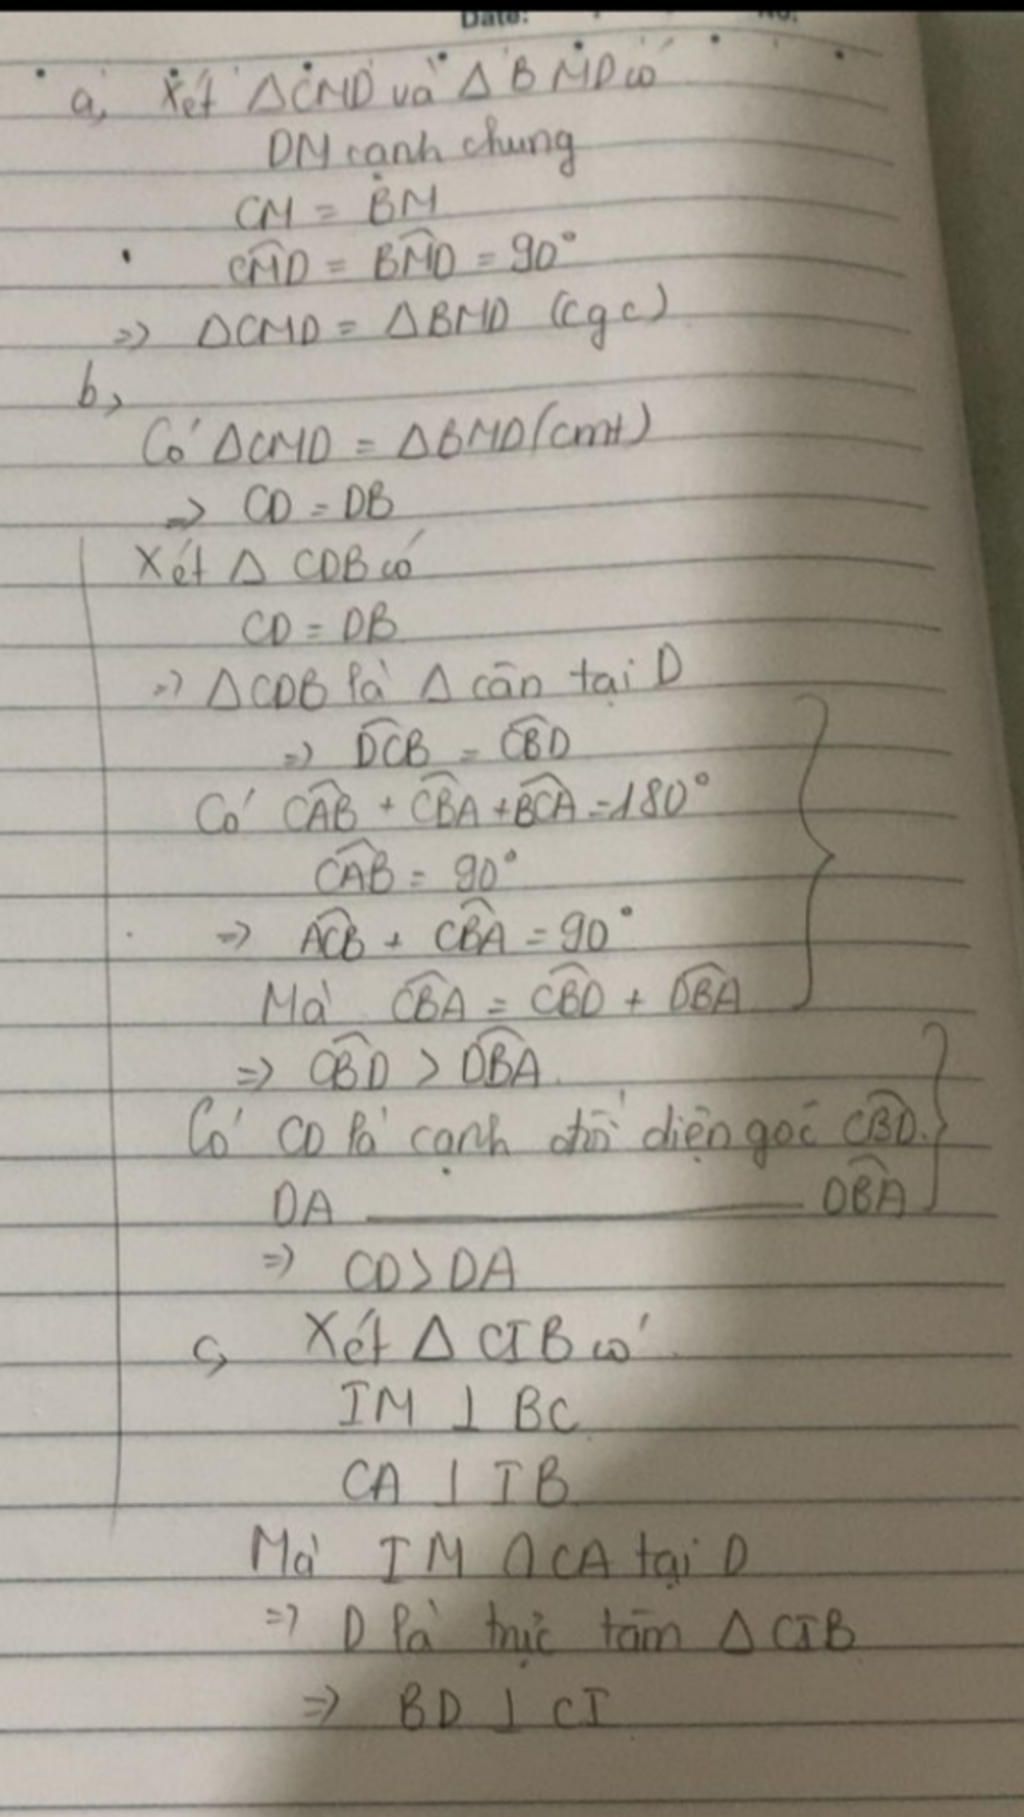 Date: No.
a, Xét ΔCMD và ΔBMD có
DM cạnh chung
CM = BM
∠CMD = ∠BMD = 90°
=> ΔCMD = ΔBMD (cgc)
b,
Có ΔCMD = ΔBMD (cmt)
=> CD = DB
Xét Δ CDB có
CD = DB
=> ΔCDB là Δ cân tại D
=> ∠DCB = ∠CBD
Có ∠CAB + ∠CBA + ∠BCA = 180°
∠CAB = 90°
=> ∠ACB + ∠CBA = 90°
Mà ∠CBA = ∠CBD + ∠DBA
=> ∠CBD > ∠DBA
Có CD là cạnh đối diện góc ∠CBD.
DA ——— ∠DBA
=> CD > DA
c, Xét Δ CIB có
IM ⊥ BC
CA ⊥ IB
Mà IM ∩ CA tại D
=> D là trực tâm Δ CIB
=> BD ⊥ CI